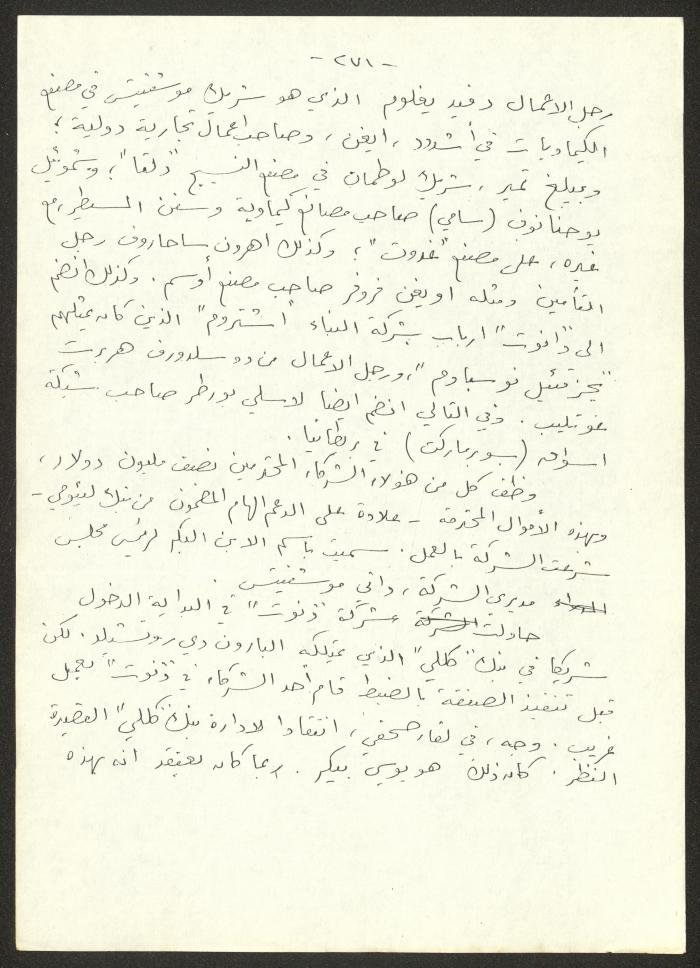 - ٢٧١ -
رجل الاعمال دفيد يغلوم الذي هو شريك موشفيتش في مصنع
الكيماويات في أشدود، ايفن، وصاحب اعمال تجارية دولية؛
وبيلغ تمير، شريك لوطمان في مصنع النسيج "دلتا"؛ وشموئيل
يوحنانوف (سامي) صاحب مصانع كيماوية وسنن المسيطر، مع
غيره، على مصنع "غدوت"؛ وكذلك اهرون ساحاروف رجل
التأمين ومثله او يغن فروفر صاحب مصنع أوسم. وكذلك انضم
الى "دانوت" ارباب شركة البناء "اشتروم" الذين كان يمثلهم
"يحزقئيل نوسباوم"، ورجل الاعمال من دوسلدورف هربرت
غوتليب. وفي التالي انضم ايضا لاسلي بورطر صاحب شبكة
اسواق (سوبرماركت) في بريطانيا.
وظف كل من هؤلاء الشركاء المحترمين نصف مليون دولار،
وبهذه الأموال المحترمة - علاوة على الدعم الهام المضمون من بنك لئومي -
شرعت الشركة بالعمل. سميت باسم الابن البكر لرئيس مجلس
مديري الشركة، داني موشفيتش.
حاولت الشركة شركة "دنوت" في البداية الدخول
شريكا في بنك "كللي" الذي يمتلكه البارون دي روتشيلد. لكن
قبل تنفيذ الصفقة بالضبط قام أحد الشركاء في "دنوت" بعمل
غريب. وجه، في لقاء صحفي، انتقادا لادارة بنك "كللي" القصيرة
النظر. كان ذلك هو يوسي بيكر. ربما كان يعتقد انه بهذه